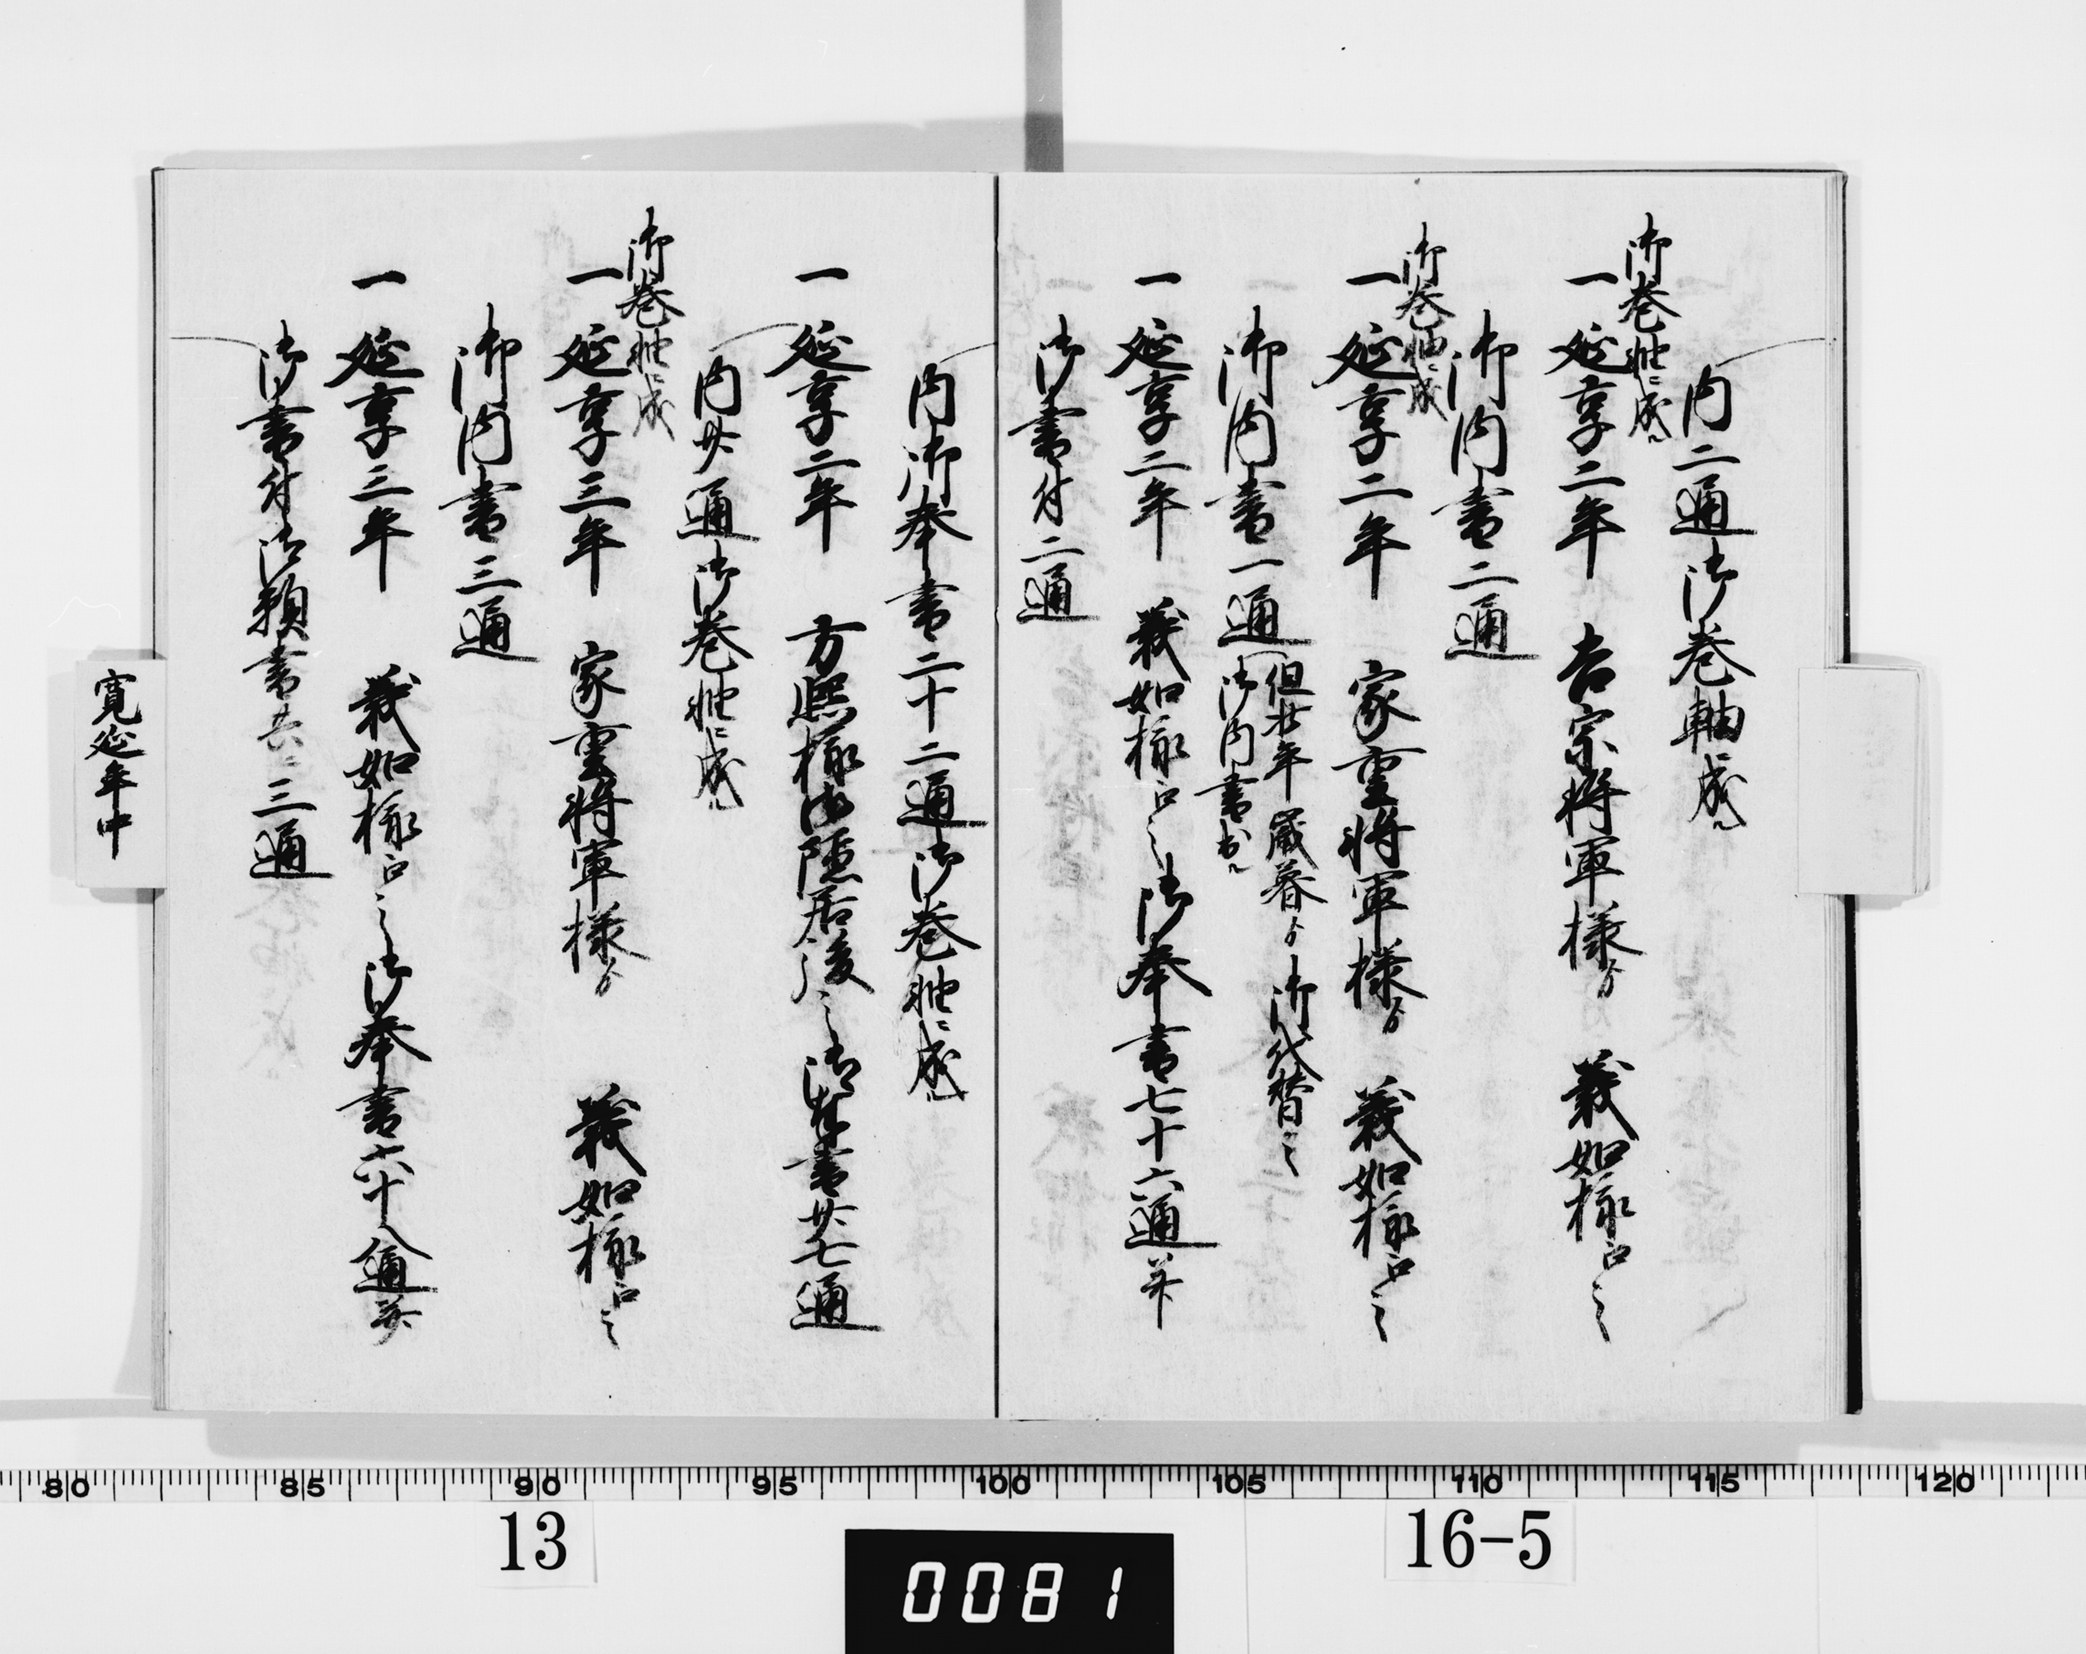 内二通御巻軸ニ成ル
御巻軸ニ成ル
一 延享二年 吉宗将軍様ゟ 義如様江之
御内書二通
御巻軸ニ成
一 延享二年 家重将軍様ゟ 義如様江之
御内書一通
但廿年歳暮ゟ御代替之
御内書也
一 延享二年 義如様江之御奉書七十六通并
御書付二通
内御奉書二十二通御巻軸ニ成ル
一 延享二年 方熈様御隠居後之御奉書廿七通
内廿通御巻軸ニ成ル
御巻軸ニ成
一 延享三年 家重将軍様ゟ 義如様江之
御内書三通
一 延享三年 義如様江之御奉書六十八通并
御書付御頼書共ニ三通
寛延年中
80 85 90 95 100 105 110 115 120
13
16-5
0081